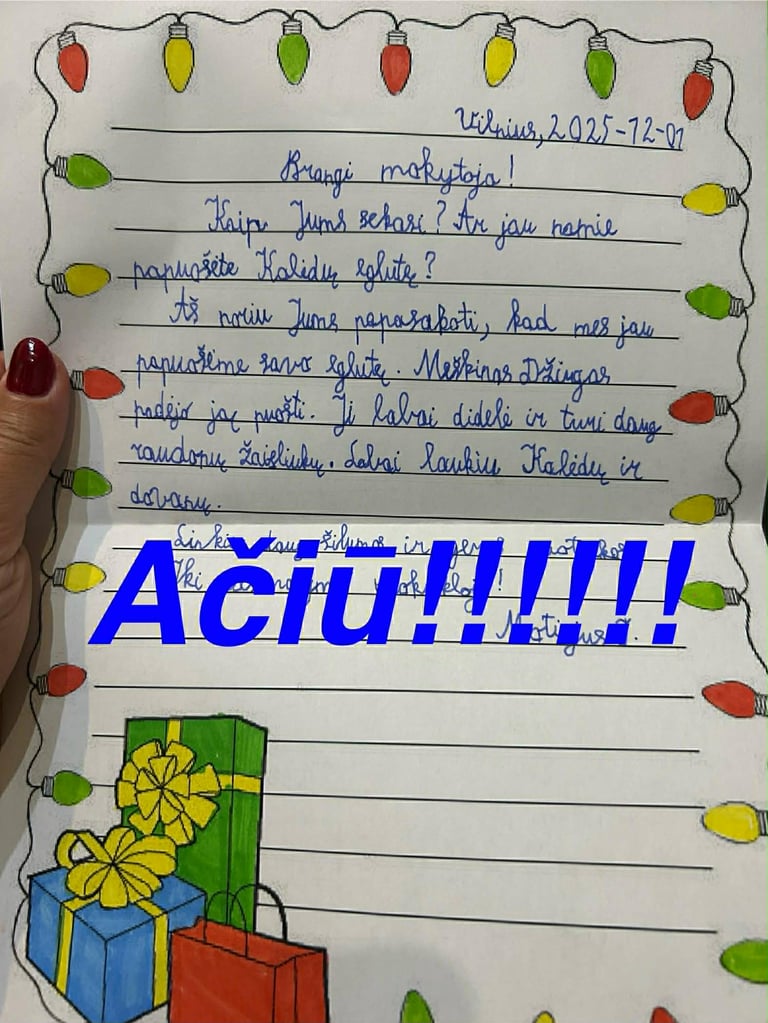 Vilnius, 2025-12-01
Brangi mokytoja!
Kaip Jums sekasi? Ar jau namie
papuošėte Kalėdų eglutę?
Aš noriu Jums papasakoti, kad mes jau
papuošėme savo eglutę. Meškinas Džiugas
padėjo ją puošti. Ji labai didelė ir turi daug
raudonų žaisliukų. Labai laukiu Kalėdų ir
dovanų.
Linkiu daug šilumos ir
Iki
Ačiū!!!!!!
Motiejus